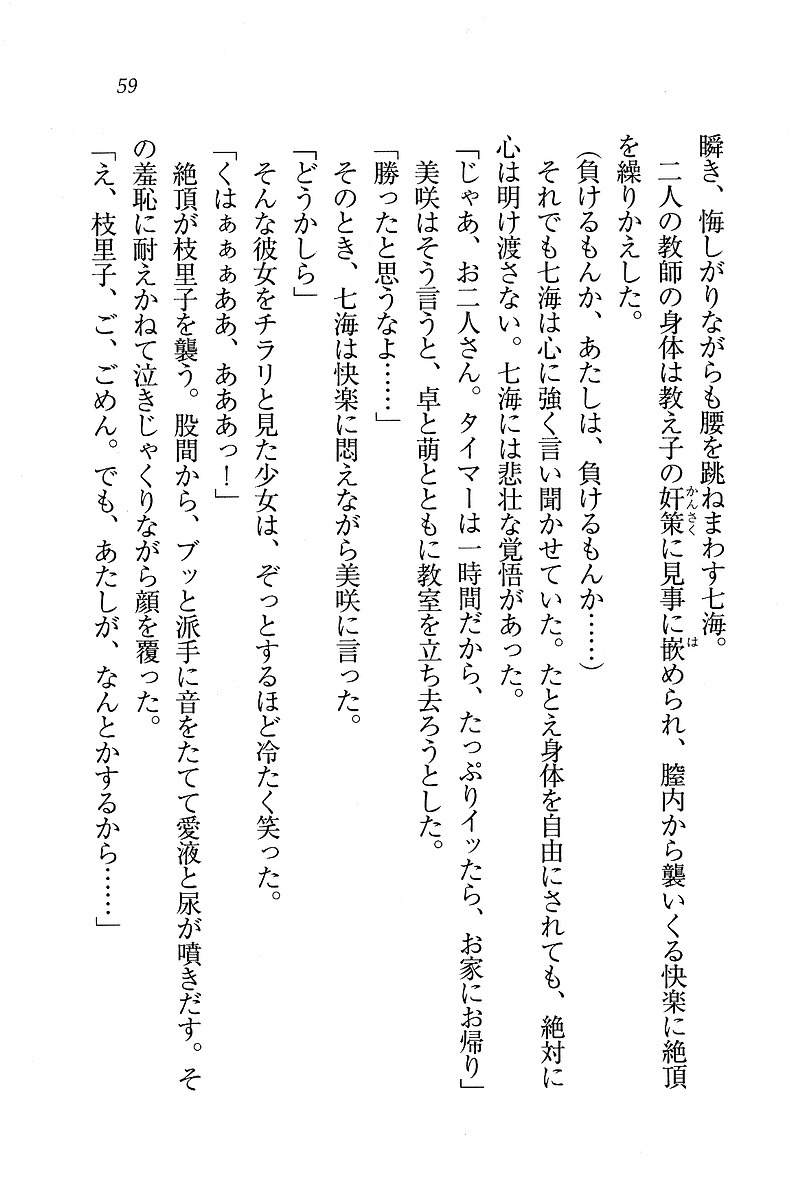 59
瞬き、悔しがりながらも腰を跳ねまわす七海。
二人の教師の身体は教え子の奸策かんさくに見事に嵌はめられ、膣内から襲いくる快楽に絶頂
を繰りかえした。
（負けるもんか、あたしは、負けるもんか……）
それでも七海は心に強く言い聞かせていた。たとえ身体を自由にされても、絶対に
心は明け渡さない。七海には悲壮な覚悟があった。
「じゃあ、お二人さん。タイマーは一時間だから、たっぷりイッたら、お家にお帰り」
美咲はそう言うと、卓と萌とともに教室を立ち去ろうとした。
「勝ったと思うなよ……」
そのとき、七海は快楽に悶えながら美咲に言った。
「どうかしら」
そんな彼女をチラリと見た少女は、ぞっとするほど冷たく笑った。
「くはぁぁぁああ、あああっ！」
絶頂が枝里子を襲う。股間から、ブッと派手に音をたてて愛液と尿が噴きだす。そ
の羞恥に耐えかねて泣きじゃくりながら顔を覆った。
「え、枝里子、ご、ごめん。でも、あたしが、なんとかするから……」